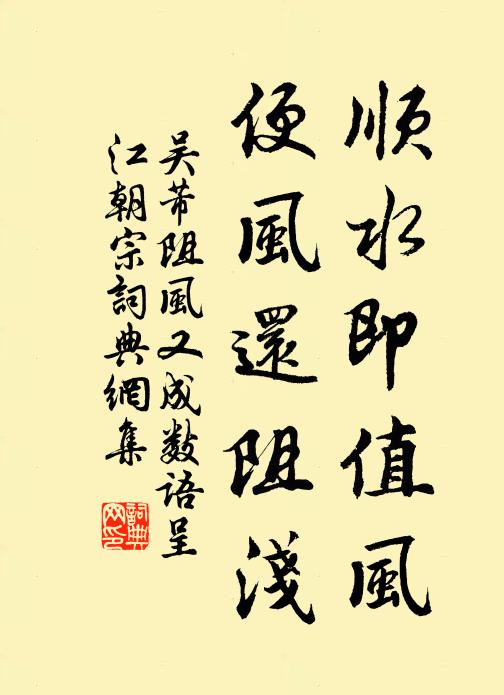 順水即值風
便風還阻淺
吳芾阻風又成数語呈
江朝宗詞典網集
詞典网印